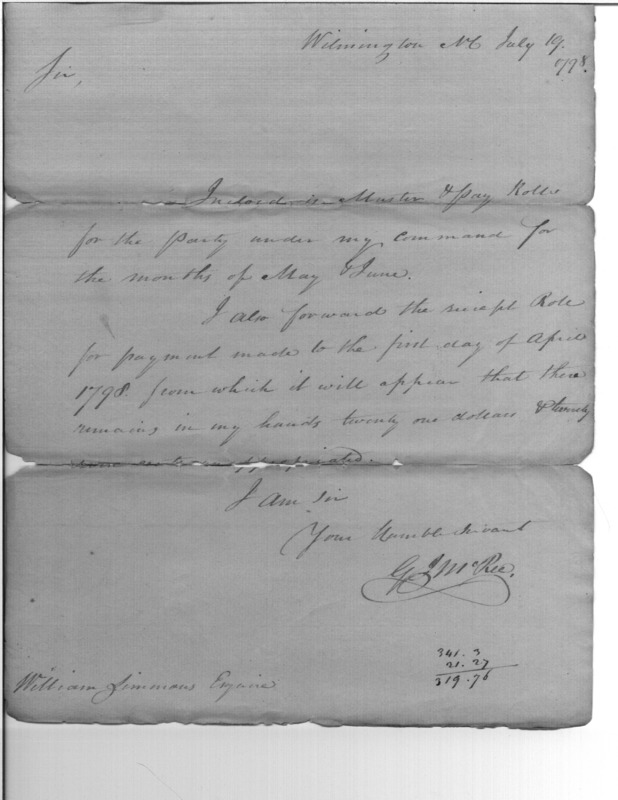 Wilmington NC July 19.
1798.
Sir,
Inclosed is Muster & Pay Rolls
for the Party under my command for
the months of May & June.
I also forward the receipt Role
for payment made to the first day of April
1798. from which it will appear that there
remains in my hands twenty one dollars & twenty
I am Sir
Your Humble Servant
G J McRee.
341.3
21.27
319.76
William Simmons Esquire